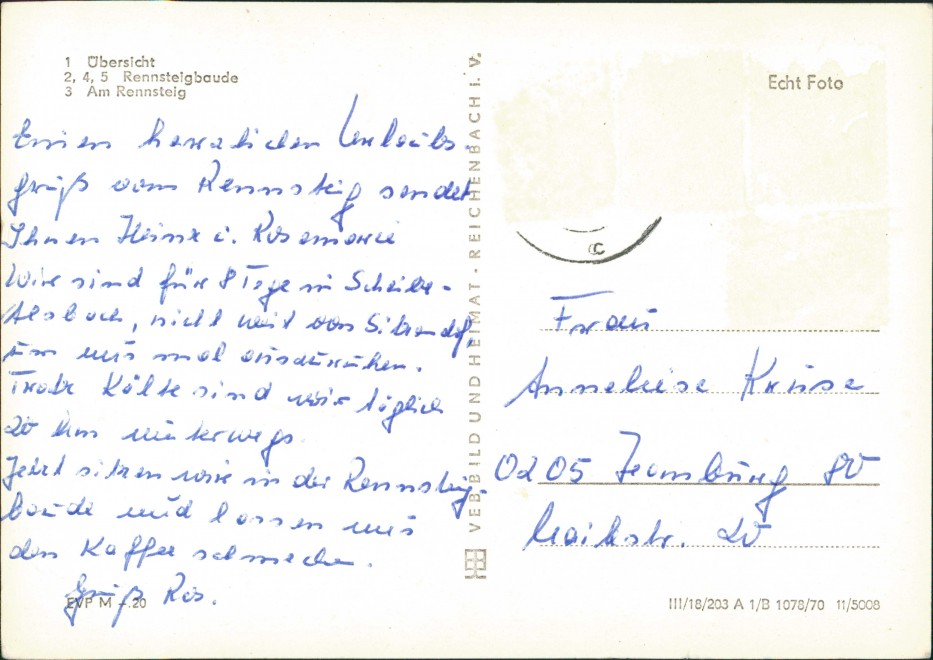 1 Übersicht
2, 4, 5 Rennsteigbaude
3 Am Rennsteig
Einen herzlichen Urlaubs-
gruß vom Rennsteig sendet
Ihnen Heinz u. Rosemarie
Wir sind für 8 Tage in Scheibe-
Alsbach, nicht weit von Sitzendorf,
um uns mal auszuruhen.
Trotz Kälte sind wir täglich
20 km unterwegs.
Jetzt sitzen wir in der Rennsteig-
baude und lassen uns
den Kaffee schmecken.
Gruß Ros.
EVP M -.20
VEB BILD UND HEIMAT · REICHENBACH i. V.
Echt Foto
C
Frau
Anneliese Kruse
0205 80
20
III/18/203 A 1/B 1078/70 11/5008